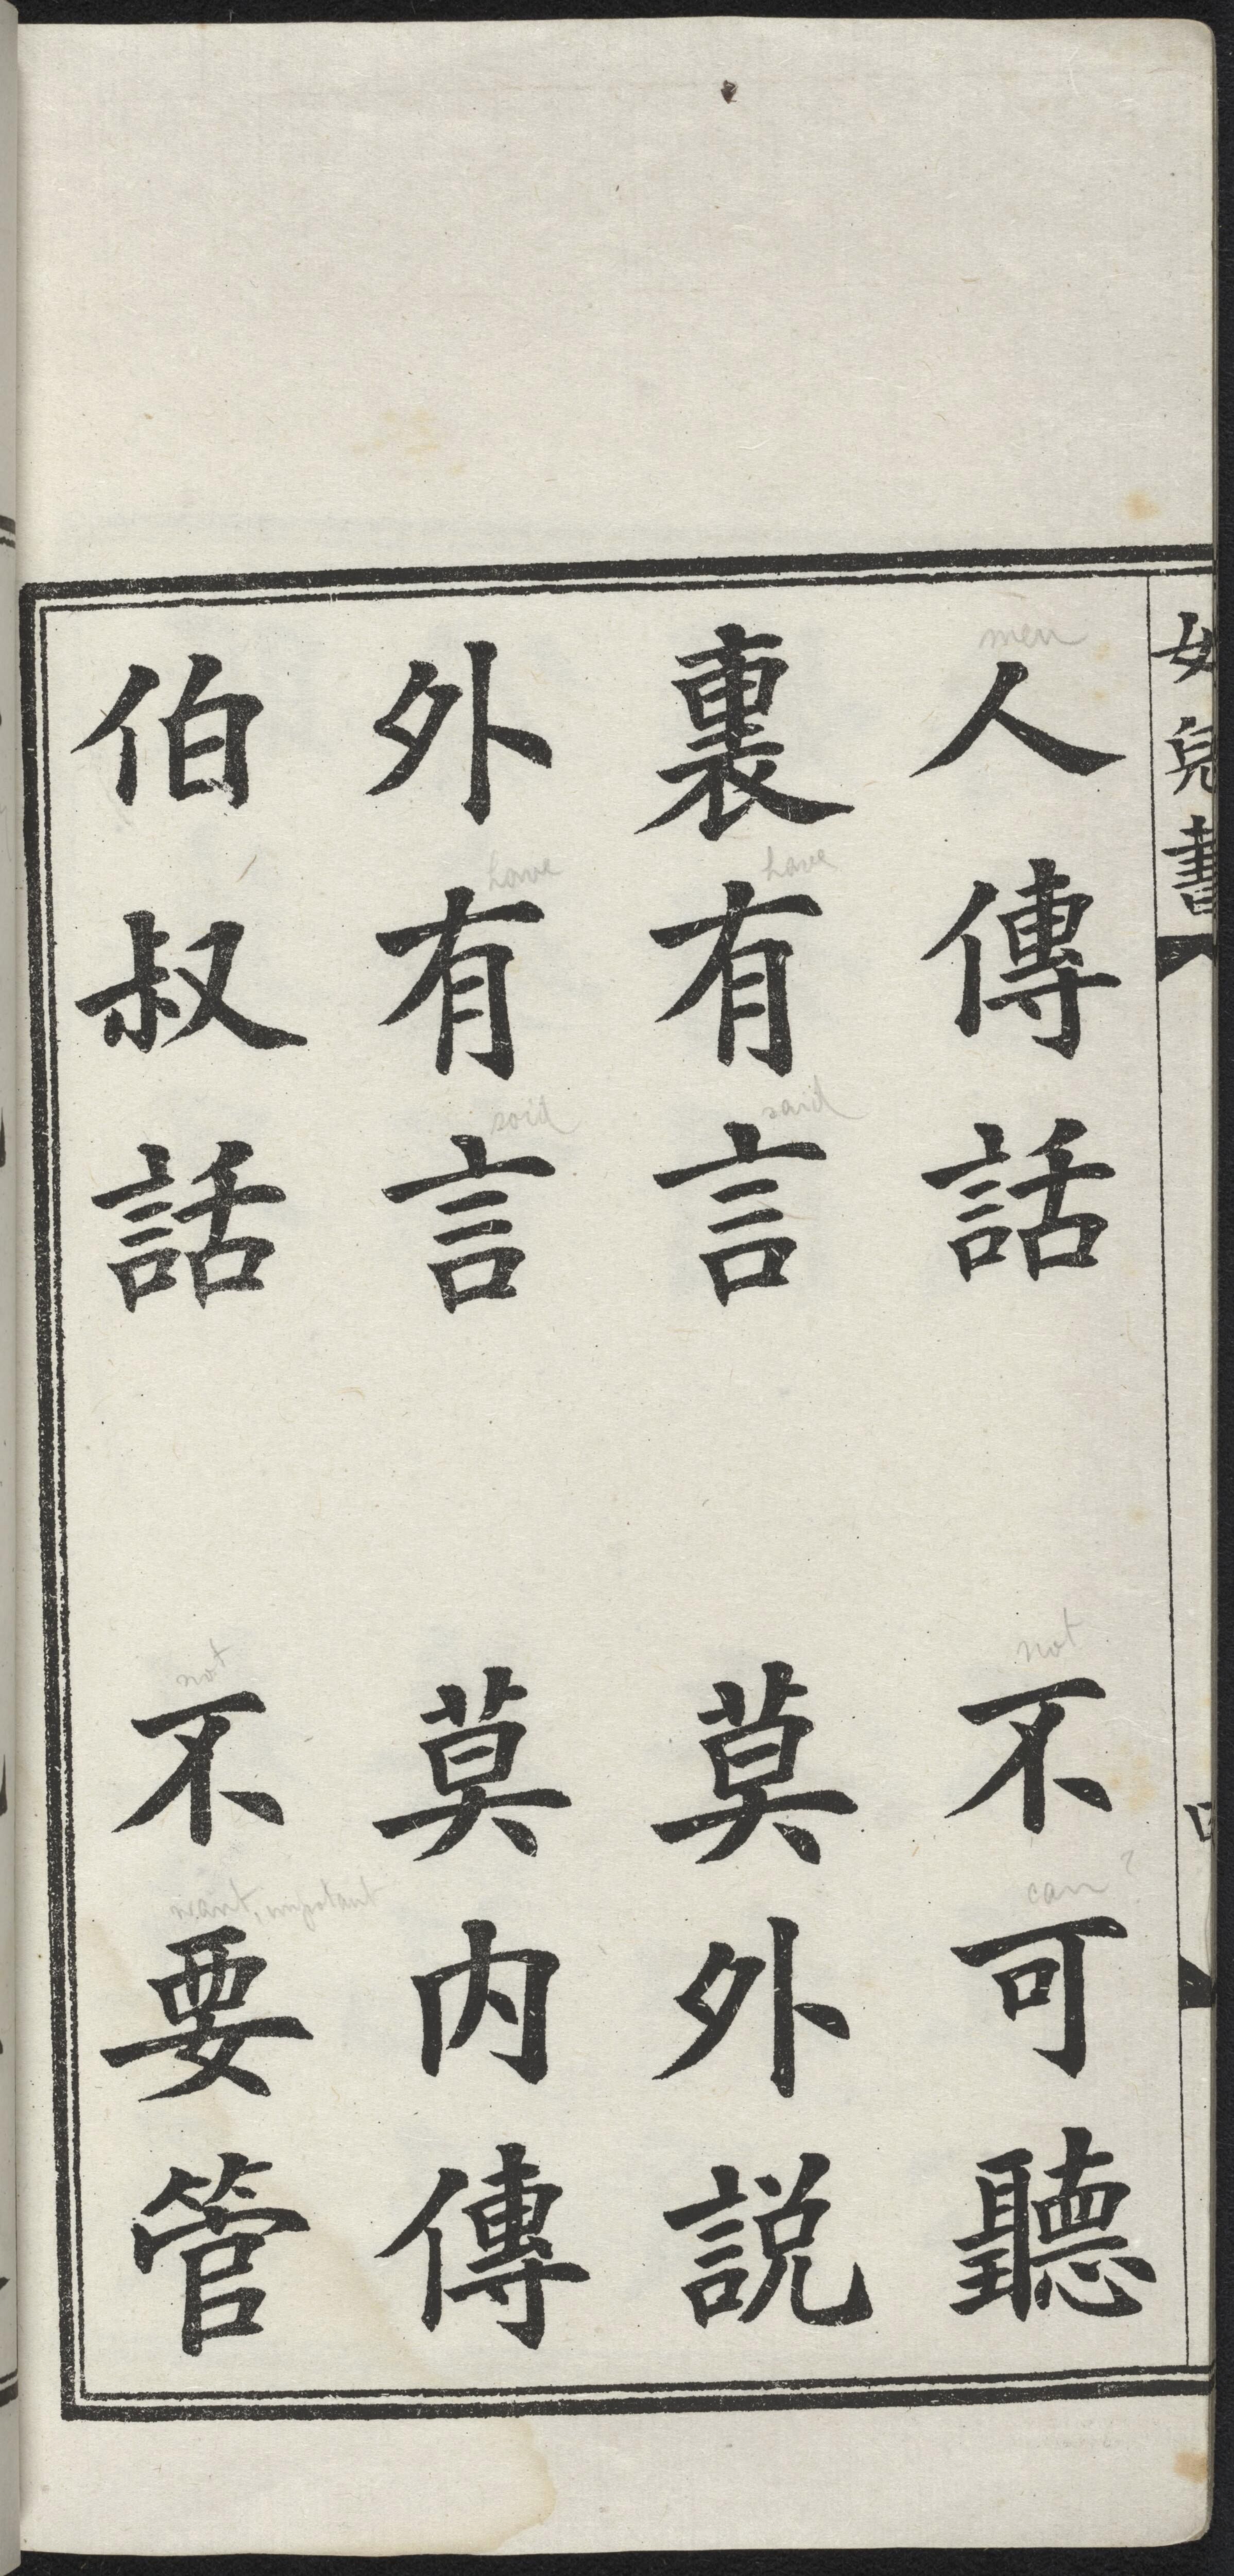 女兒書
人傳話 不可聽
裏有言 莫外説
外有言 莫内傳
伯叔話 不要管
men
not
can ?
have
said
have
said
not
want, important